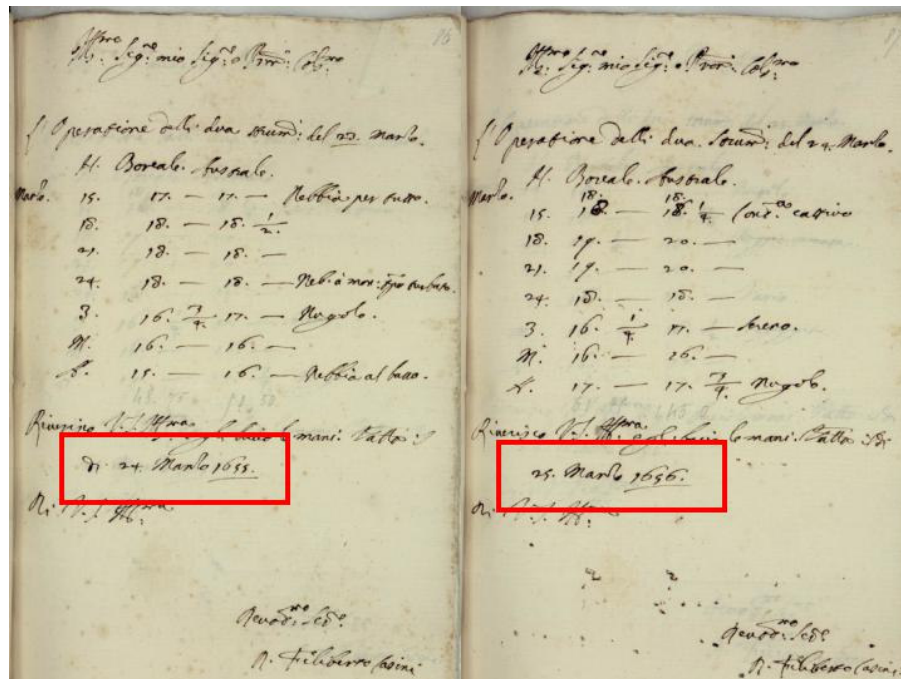 86
Sig.re mio Sig.re e
L'Operatione delli dua strum: del 23. Marzo.
H. Boreale. Australe.
Marzo. 15. 17. — 17. — Nebbia per tutto.
18. 18. — 18. 1/2.
21. 18. — 18. —
24. 18. — 18. —
3. 16. 3/4. 17. — Nugolo.
M. 16. — 16. —
15. — 16. — Nebbia al basso.
Riverisco V.S. Ill.ma e gli bacio le mani.
di 24. Marzo 1655.
Di V.S. Ill.ma
Devot.mo Ser.e
D. Filiberto Casini
87
Sig.re mio Sig.re e
L'Operatione delli dua. strum: del 24. Marzo.
H. Boreale. Australe.
18. 18.
Marzo. 15. 18. — 18. 1/4 cattivo
18. 19. — 20. —
21. 19. — 20. —
24. 18. — 18. —
3. 16. 1/4 17. — sereno.
M. 16. — 16. —
17. — 17. 3/4 nugolo.
Riverisco V.S. Ill.ma e gli bacio le mani.
25. Marzo 1656.
Di V.S. Ill.ma
Devot.mo Ser.e
D. Filiberto Casini